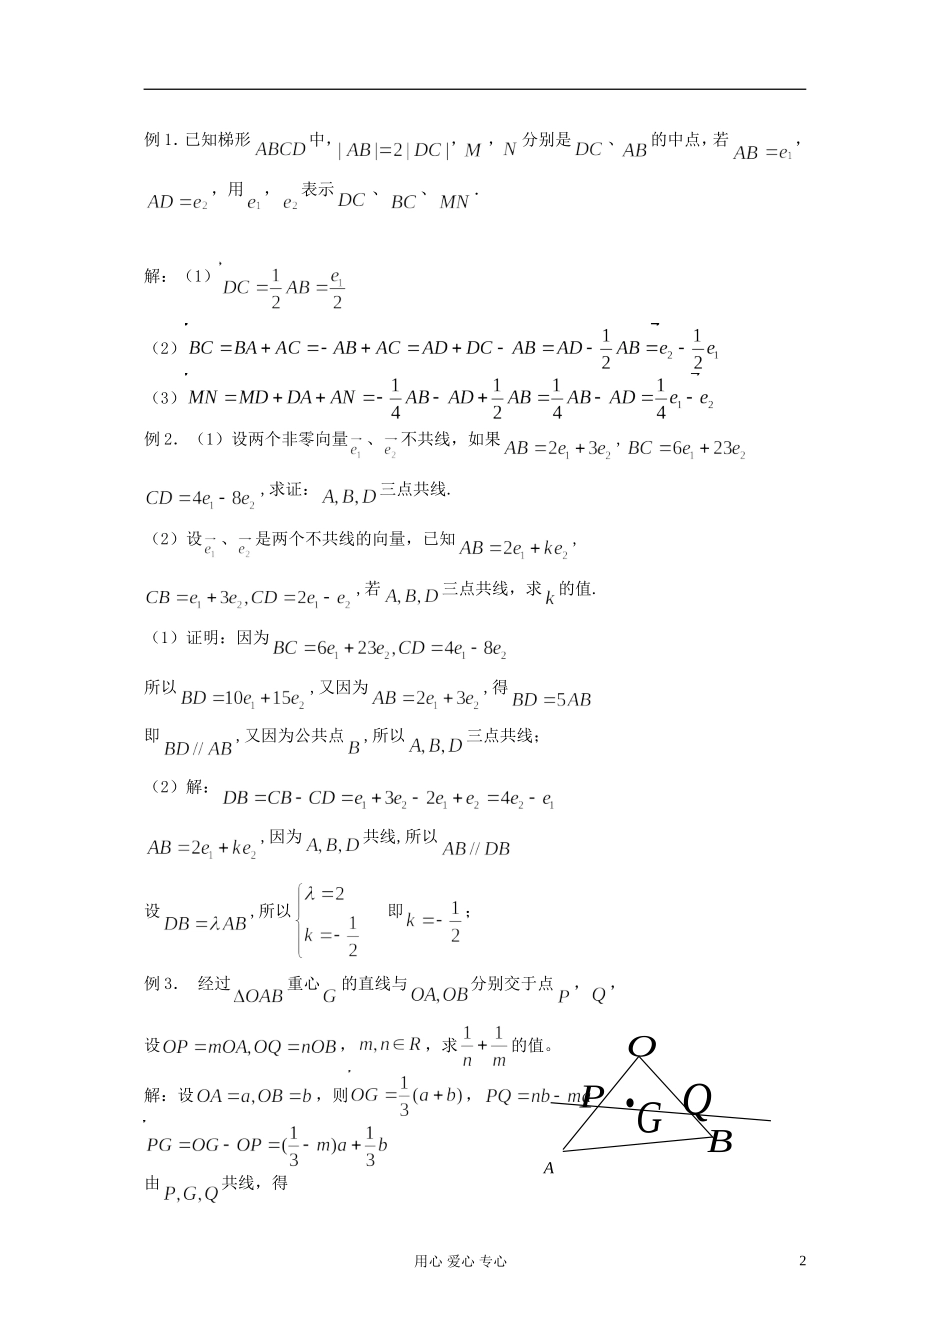 例1.已知梯形ABCD中,|AB|=2|DC|,M,N分别是DC、AB的中点,若AB=e₁,
AD=e₂,用e₁,e₂表示DC、BC、MN.
解:(1)DC=1/2AB=e₁/2
(2)BC=BA+AC=-AB+AC=AD+DC-AB=AD-1/2AB=e₂-1/2e₁
(3)MN=MD+DA+AN=-1/4AB-AD+1/2AB=1/4AB-AD=1/4e₁-e₂
例2.(1)设两个非零向量e₁、e₂不共线,如果AB=2e₁+3e₂,BC=6e₁+23e₂
CD=4e₁-8e₂,求证:A,B,D三点共线.
(2)设e₁、e₂是两个不共线的向量,已知AB=2e₁+ke₂,
CB=e₁+3e₂,CD=2e₁-e₂,若A,B,D三点共线,求k的值.
(1)证明:因为BC=6e₁+23e₂,CD=4e₁-8e₂
所以BD=10e₁+15e₂,又因为AB=2e₁+3e₂,得BD=5AB
即BD//AB,又因为公共点B,所以A,B,D三点共线;
(2)解:DB=CB-CD=e₁+3e₂-2e₁+e₂=4e₂-e₁
AB=2e₁+ke₂,因为A,B,D共线,所以AB//DB
设DB=λAB,所以{λ=2 k=-1/2 即k=-1/2;
例3. 经过ΔOAB重心G的直线与OA,OB分别交于点P,Q,
设OP=mOA,OQ=nOB,m,n∈R,求1/n+1/m的值。
解:设OA=a,OB=b,则OG=1/3(a+b),PQ=nb-ma
PG=OG-OP=(1/3-m)a+1/3b
由P,G,Q共线,得
O
P
G
Q
B
A
用心 爱心 专心
2